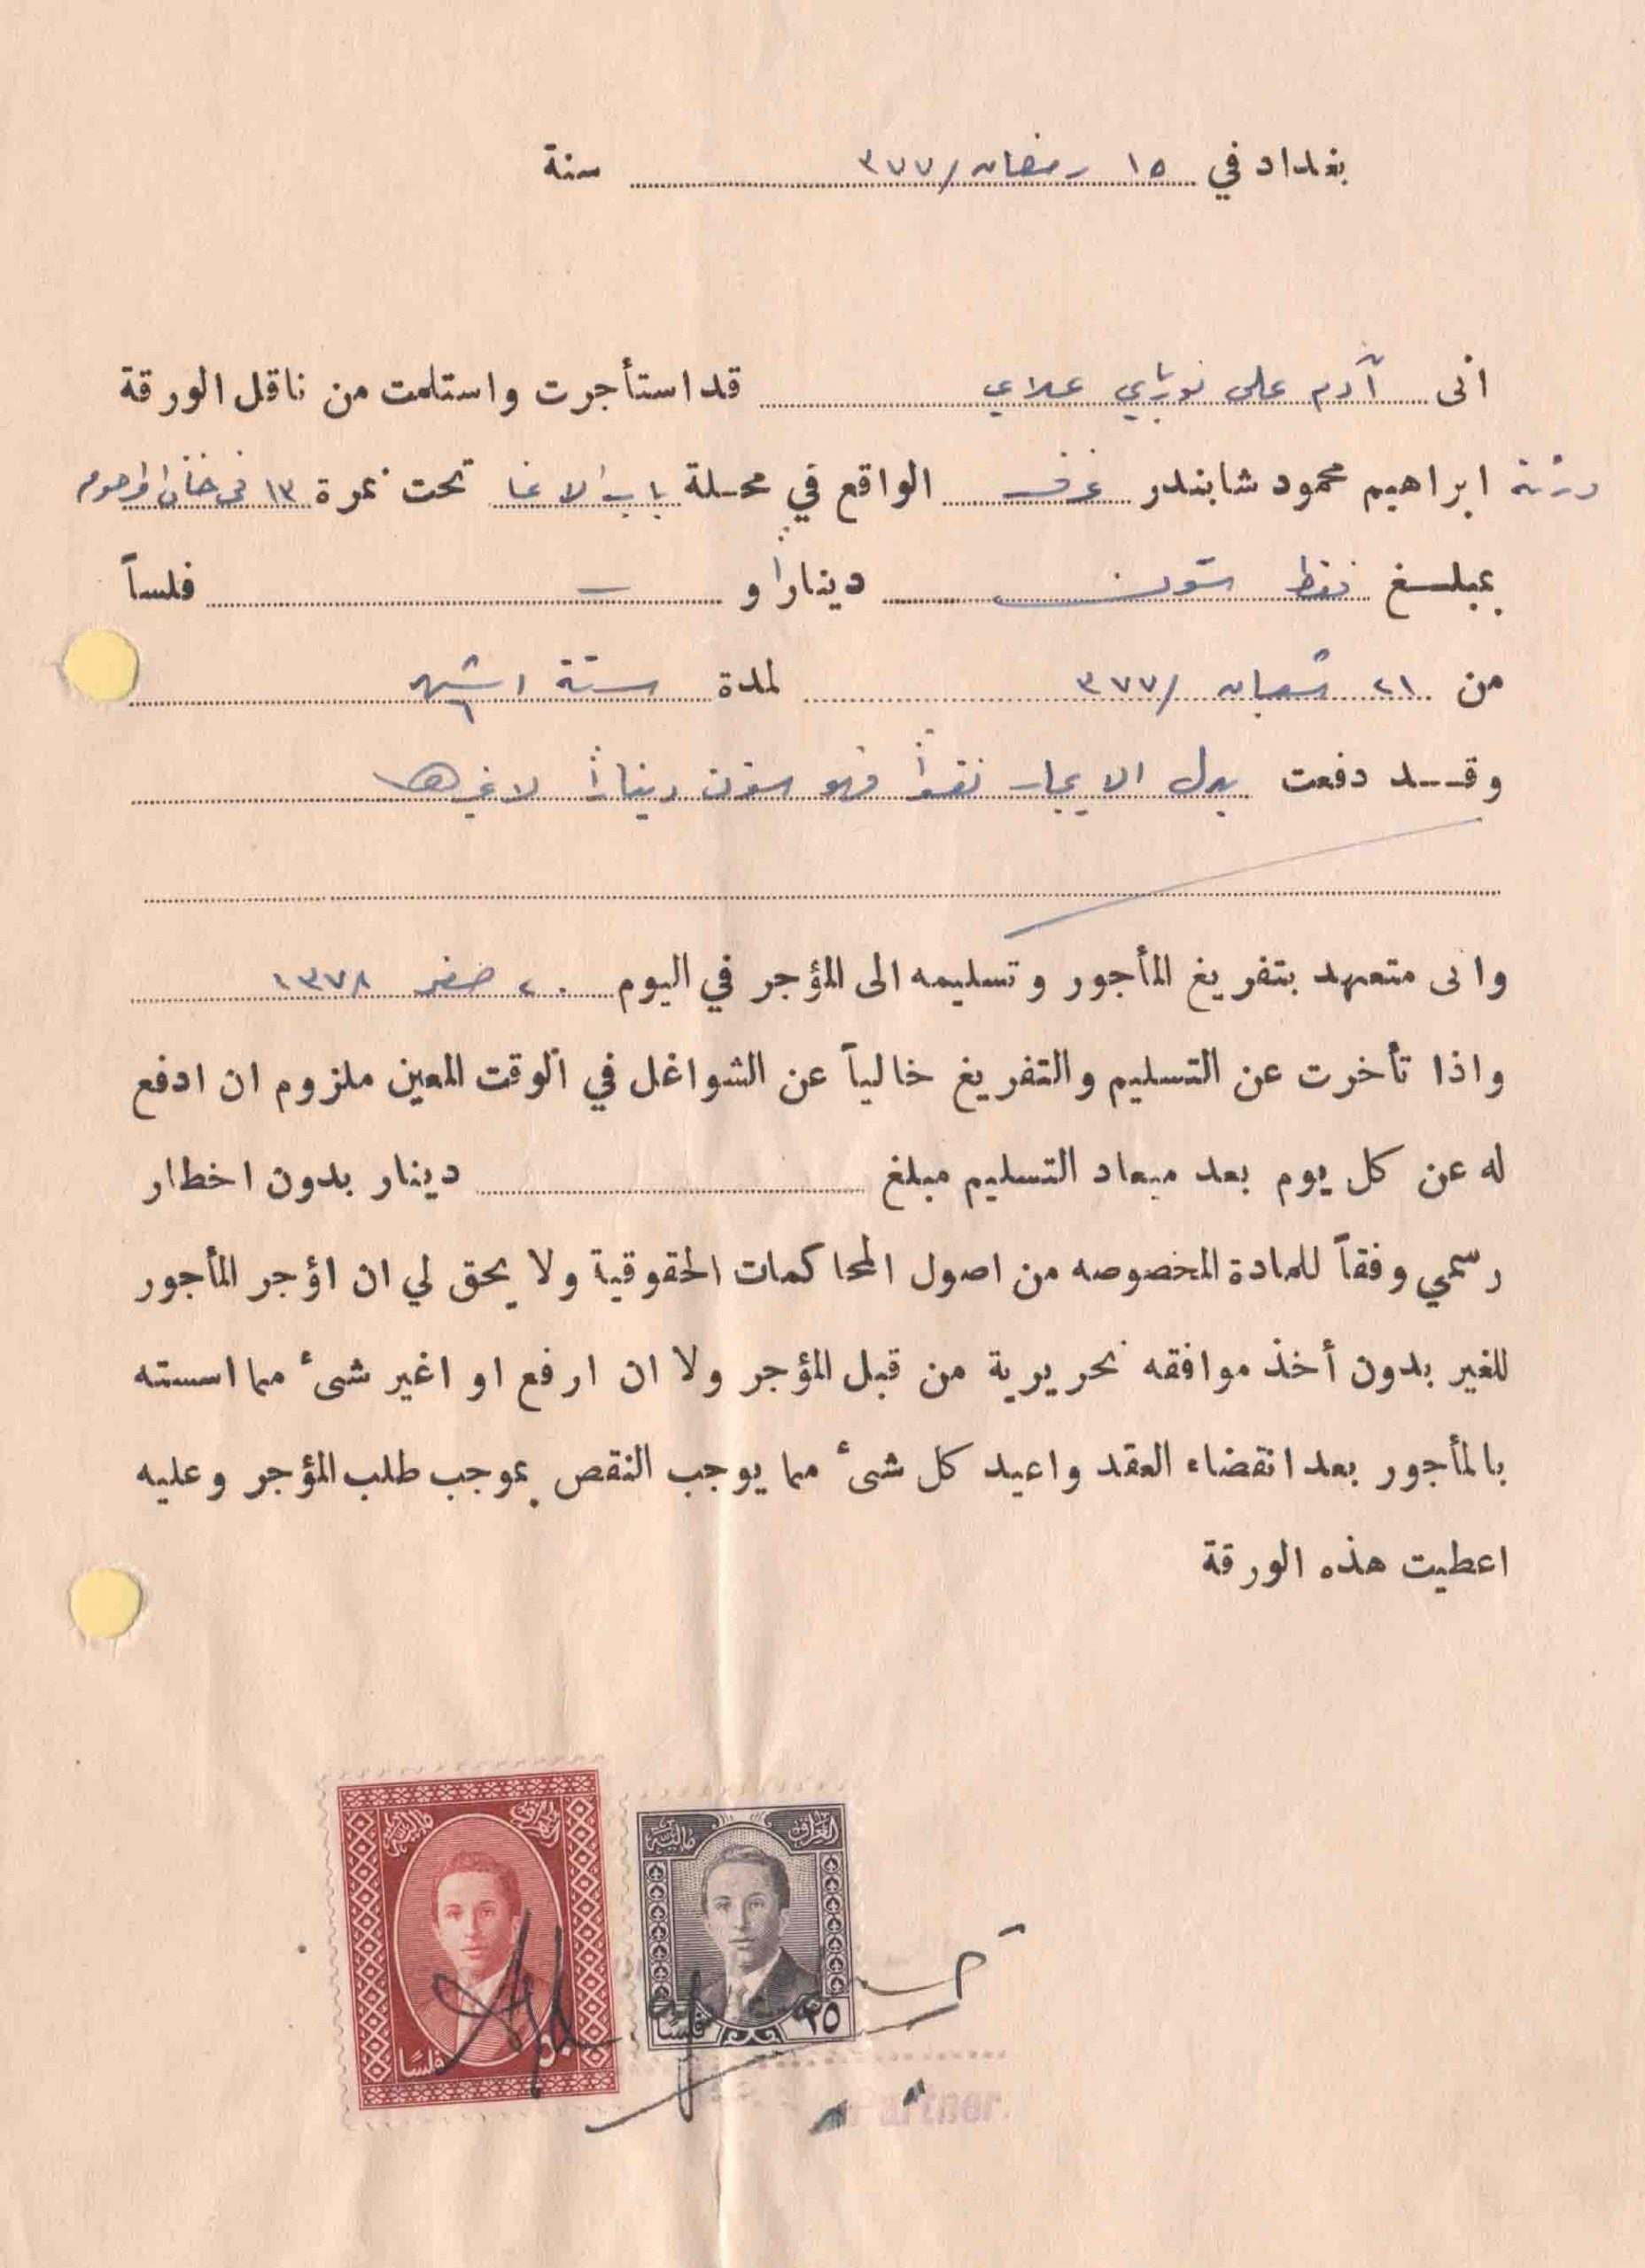 بغداد في ١٥ رمضان / ٣٧٧ سنة
انى آدم على نورباي علاي قد استأجرت واستلمت من ناقل الورقة
ورثة ابراهيم محمود شابندر غرف الواقع في محلة باب الاغا تحت نمرة ١٣ في خان المرحوم
بمبلغ فقط ستون ديناراً و — فلساً
من ٢١ شعبان / ٣٧٧ لمدة ستة اشهر
وقد دفعت بدل الايجار نقداً وهو ستون ديناراً لا غيرها
وانى متعهد بتفريغ المأجور وتسليمه الى المؤجر في اليوم ٢٠ صفر ١٣٧٨
واذا تأخرت عن التسليم والتفريغ خالياً عن الشواغل في الوقت المعين ملزوم ان ادفع
له عن كل يوم بعد ميعاد التسليم مبلغ دينار بدون اخطار
رسمي وفقاً للمادة المخصوصه من اصول المحاكمات الحقوقية ولا يحق لي ان اؤجر المأجور
للغير بدون أخذ موافقه تحريرية من قبل المؤجر ولا ان ارفع او اغير شىء مما اسسته
بالمأجور بعد انقضاء العقد واعيد كل شىء مما يوجب النقص بموجب طلب المؤجر وعليه
اعطيت هذه الورقة
العراق مالية
العراق مالية
٢٥ فلساً
٥٠ فلساً
Partner.